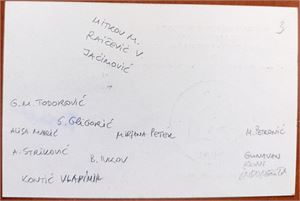 3
MITKOV M.
RAIČEVIĆ V.
JAĆIMOVIĆ
G.M. TODOROVIĆ
S. GLIGORIĆ
ALISA MARIĆ
MIRJANA PETEK
M. PETROVIĆ
A. STRIKOVIĆ
B. IVKOV
GUNAWAN
INDONESIA
KONTIĆ VLADIMIR